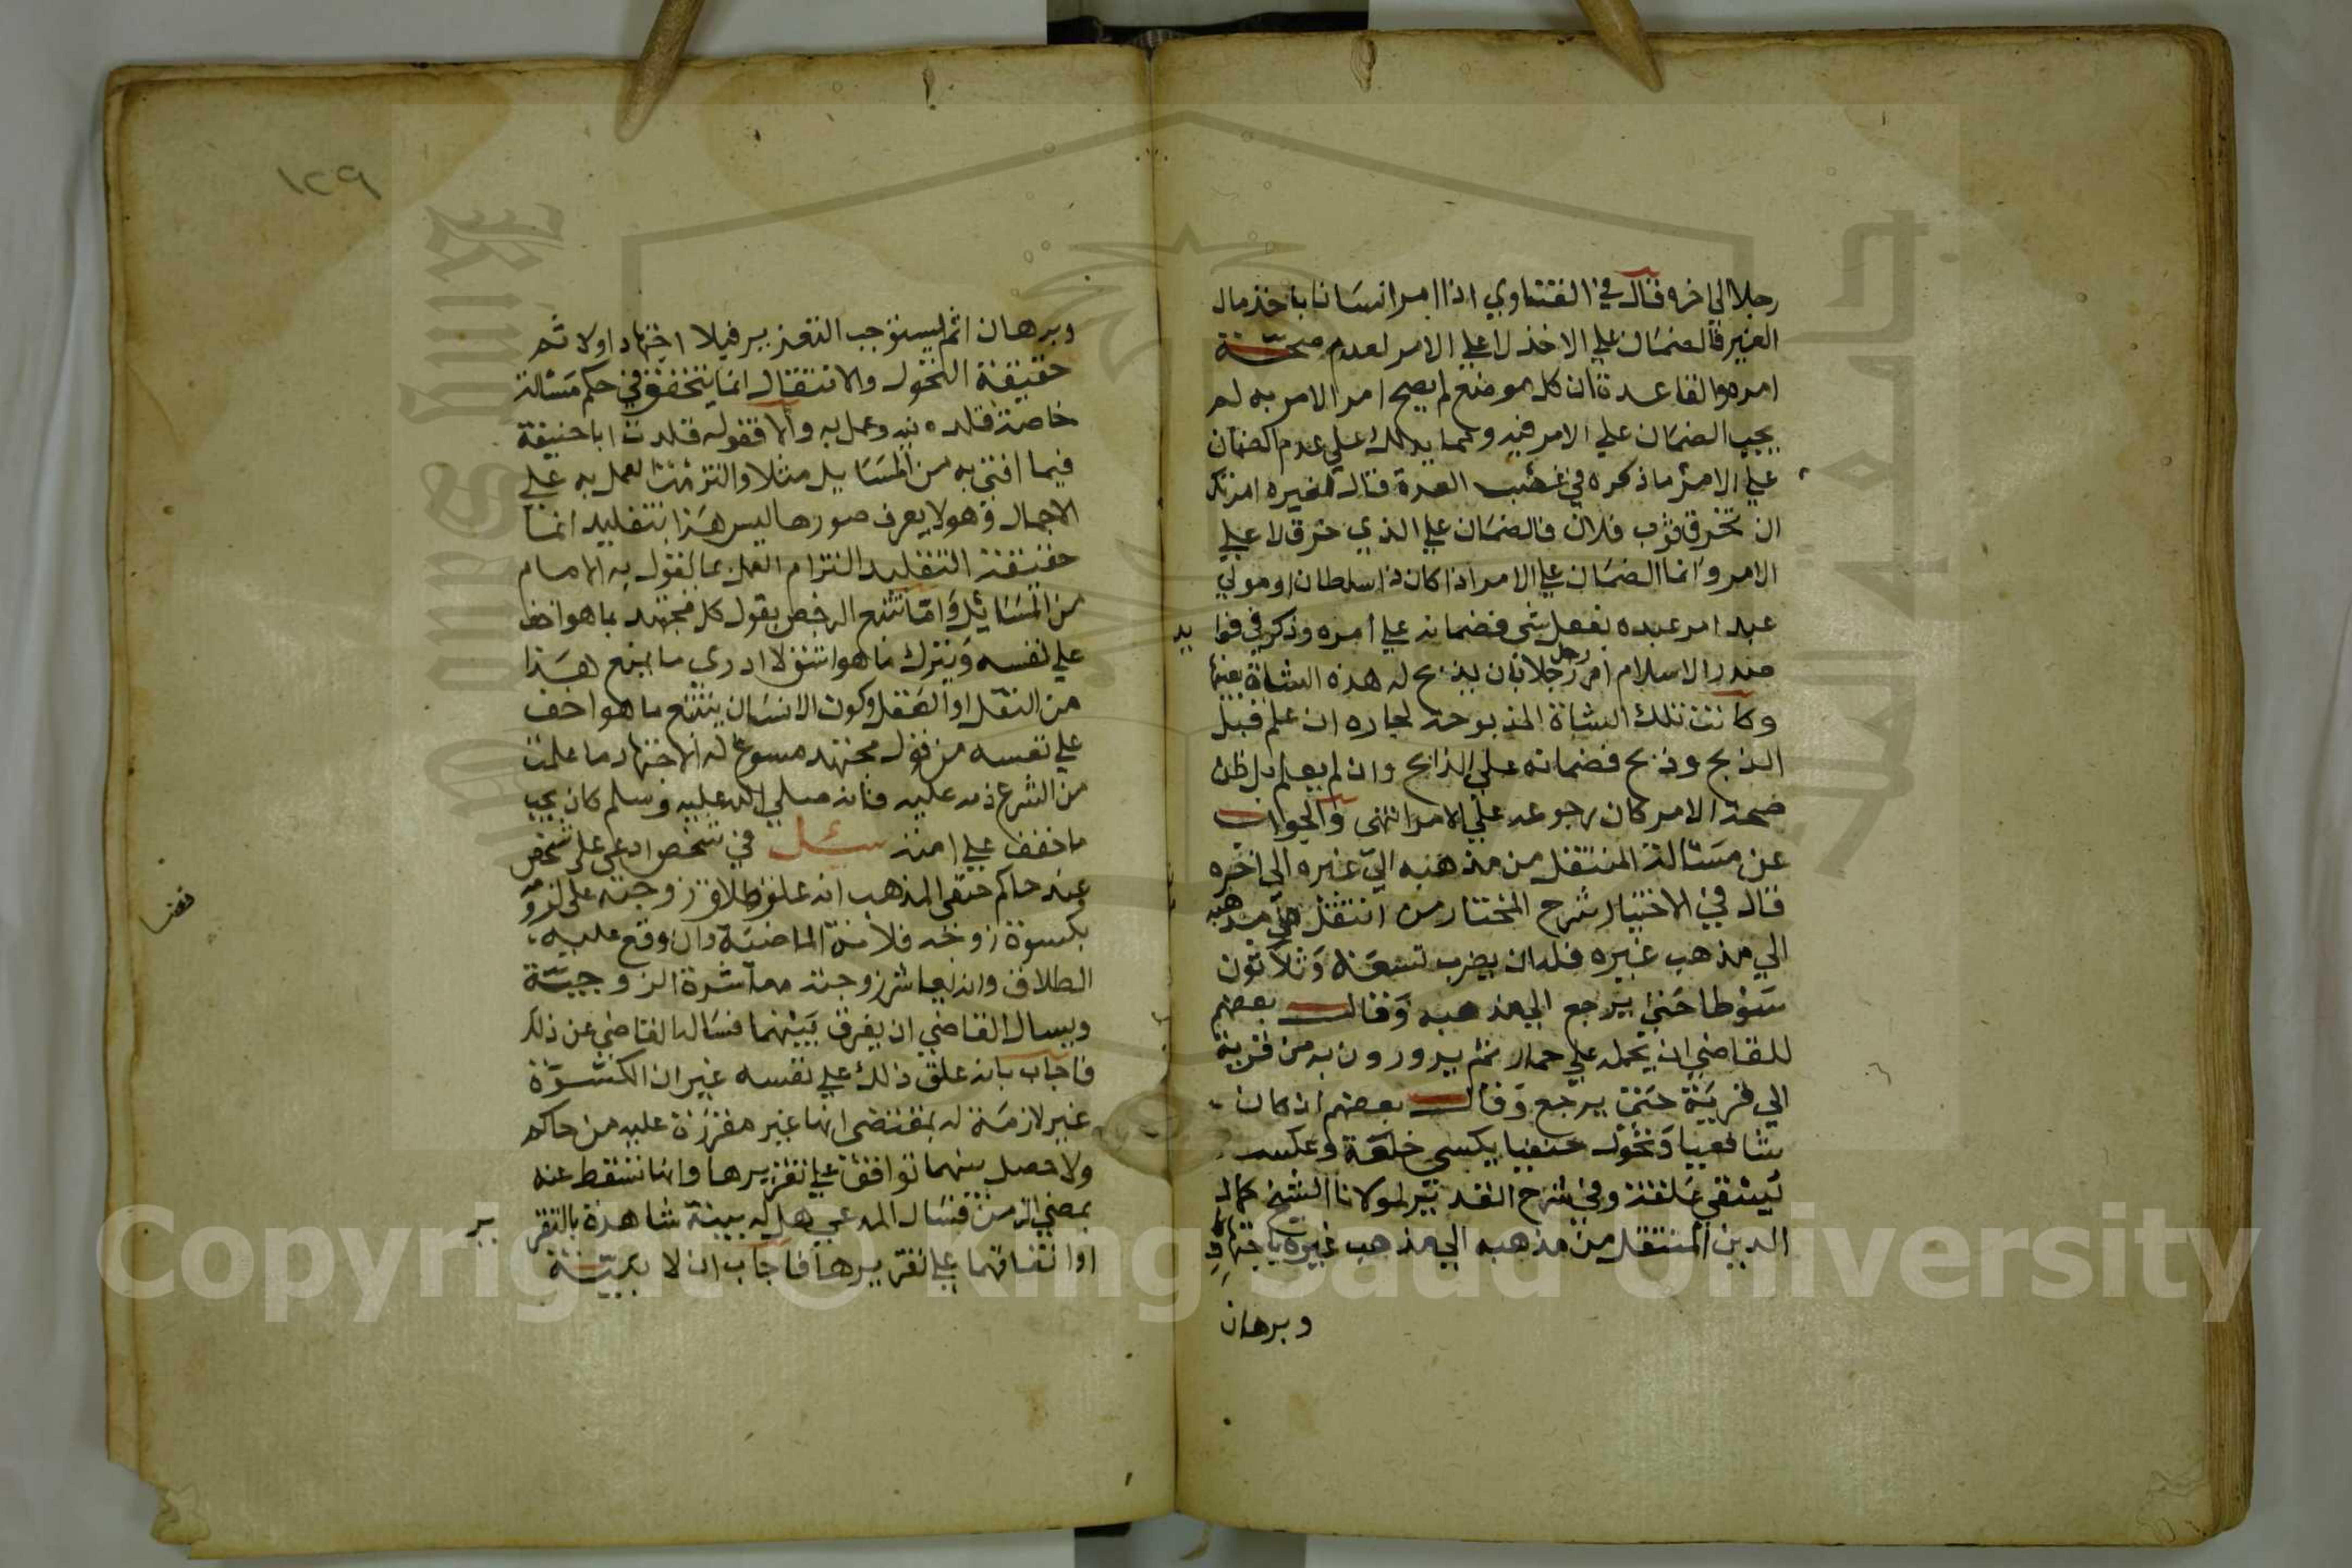 رجلا الي اخره قال في الفتاوي اذا امر انسانا باخذ مال
الغير فالضمان علي الاخذ لا علي الامر لعدم صحة
امره والقاعدة ان كل موضع لم يصح امر الامر به لم
يجب الضمان علي الامر فيه ومما يدلك علي عدم الضمان
علي الامر ما ذكره في غصب العدة قال لغيره امرتك
ان تخرق ثوب فلان فالضمان علي الذي خرق لا علي
الامر وانما الضمان علي الامر اذا كان ذا سلطان او مولي
عبد امر عبده بفعل شي فضمانه علي امره وذكر في فوايد
صدر الاسلام امر رجل رجلا بان يذبح له هذه الشاة بعينها
وكانت تلك الشاة المذبوحة لجاره ان علم قبل
الذبح وذبح فضمانه علي الذابح وان لم يعلم بل ظن
صحة الامر كان رجوعه علي الامر انتهى والجواب
عن مسالة المنتقل من مذهبه الي غيره الي اخره
قال في الاختيار شرح المختار من انتقل من مذهبه
الي مذهب غيره فله ان يضرب تسعة وثلاثون
سوطا حتي يرجع الي مذهبه وقال بعضهم
للقاضي ان يحمله علي حمار ثم يدورون به من قرية
الي قرية حتى يرجع وقال بعضهم ان كان
شافعيا وتحول حنفيا يكسي خلعة وعكسه
يستقي علقة وفي شرح القدير لمولانا الشيخ كمال
الدين المنتقل من مذهبه الي مذهب غيره باجتهاد
وبرهان
١٢٩
وبرهان اثم يستوجب التعزير فبلا اجتهاد اولا ثم
حقيقة التحول والانتقال انما يتحقق في حكم مسالة
خاصة قلده فيه وعمل به والا فقوله قلدت ابا حنيفة
فيما افتي به من المسايل مثلا والتزمت العمل به علي
الاجمال وهو لا يعرف صورها ليس هذا بتقليد انما
حقيقة التقليد التزام العمل بما يقول به الامام
من المسائل واما تتبع الرخص بقول كل مجتهد بما هو اخف
علي نفسه ويترك ما هو اشق لا ادري ما يمنع هذا
من النقل او العقل وكون الانسان يتتبع ما هو اخف
علي نفسه من قول مجتهد مسوغ له الاجتهاد ما علمت
من الشرع ذمه عليه فانه صلي الله عليه وسلم كان يحب
ما خفف علي امته سئل في شخص ادعى على شخص
عند حاكم حنفي المذهب انه علق طلاق زوجته على لزومه
بكسوة زوجته فلانة الماضية وان وقع عليه
الطلاق وانه يعاشر زوجته معاشرة الزوجية
ويسال القاضي ان يفرق بينهما فساله القاضي عن ذلك
فاجاب بانه علق ذلك علي نفسه غير ان الكسوة
غير لازمة له بمقتضى انها غير مقررة عليه من حاكم
ولا حصل بينهما توافق علي تقريرها وانها تسقط عنه
بمضي الزمن فسال المدعي هل له بينة شاهدة بالتقرير
او اتفاقهما علي تقريرها فاجاب ان لا بينة
Copyright © King Saud University